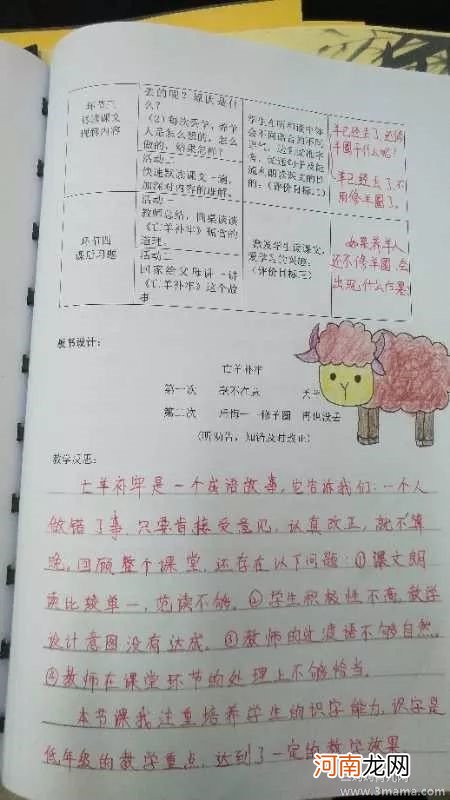 丢的呢？原因是什么？
（2）每次丢羊，养羊人是怎么想的，怎么做的，结果怎样？
环节三
课文
理解内容
活动二
快速默读课文一遍，加深对内容的理解。
羊已经丢了，还修羊圈干什么呢？
羊已经丢了，不用修羊圈了。
环节四
课后习题
活动一
教师总结，同桌谈谈《亡羊补牢》蕴含的道理。
活动二
回家给父母讲一讲《亡羊补牢》这个故事
激发学生读课文，爱学习的兴趣。
（评价目标三）
如果养羊人还不修羊圈，会出现什么后果
板书设计：
亡羊补牢
第一次 丢羊
第二次 后悔 修羊圈 再也没丢
（听劝告，知错及时改正）
教学反思：
亡羊补牢是一个成语故事，它告诉我们：一个人
做错了事，只要肯接受意见，认真改正，就不算
晚。回顾整个课堂，还存在以下问题：①课文朗
读比较单一，范读不够。②学生积极性不高，教学
设计意图没有达成。③教师的过渡语不够自然。
④教师在课堂环节的处理上不够恰当。
本节课我注重培养学生的识字能力，识字是
低年级的教学重点，达到了一定的教学效果
河南龙网
www.3mama.com